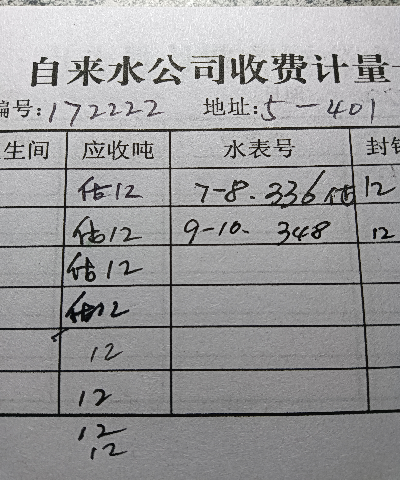 自来水公司收费计量
编号:172222 地址:5-401
生间 应收吨 水表号 封
估12 7-8. 336 估 12
估12 9-10. 348 12
估12
估12
12
12
12
12